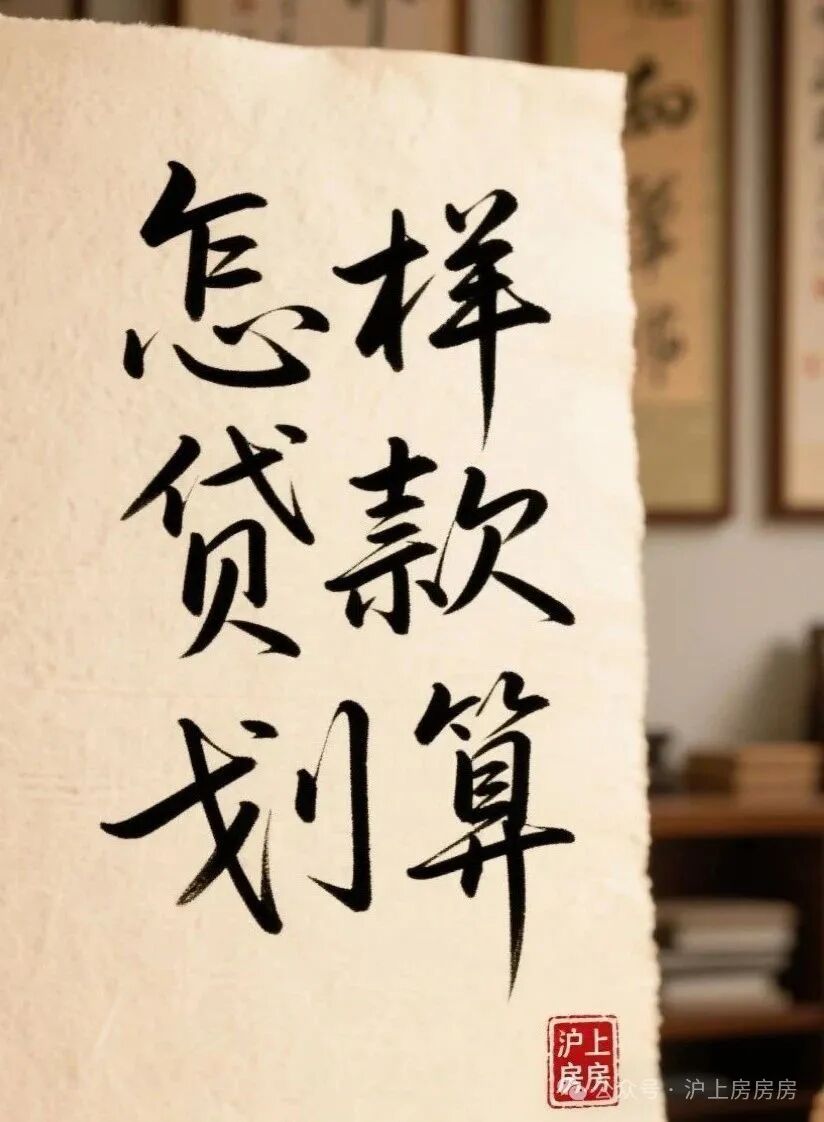 怎样
贷款
划算
沪上
房房
公众号·沪上房房房